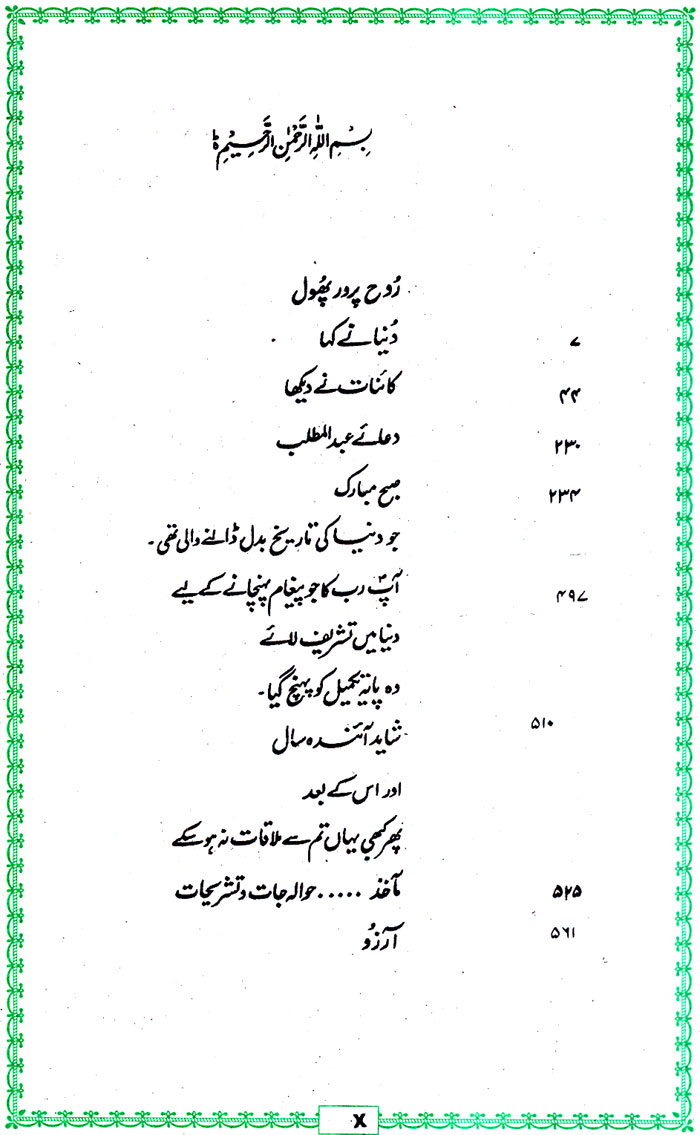 بِسْمِ اللّٰهِ الرَّحْمٰنِ الرَّحِیْمِ ؕ
رُوح پرور پھُول
دُنیا نے کہا ۷
کائنات نے دیکھا ۴۴
دعائے عبدالمطلب ۲۳۰
صبح مبارک ۲۳۴
جو دنیا کی تاریخ بدل ڈالنے والی تھی۔
آپؐ رب کا جو پیغام پہنچانے کے لیے ۴۹۷
دنیا میں تشریف لائے
وہ پایۂ تکمیل کو پہنچ گیا۔
شاید آئندہ سال ۵۱۰
اور اس کے بعد
پھر کبھی یہاں تم سے ملاقات نہ ہو سکے
مآخذ ..... حوالہ جات و تشریحات ۵۲۵
آرزُو ۵۶۱
X